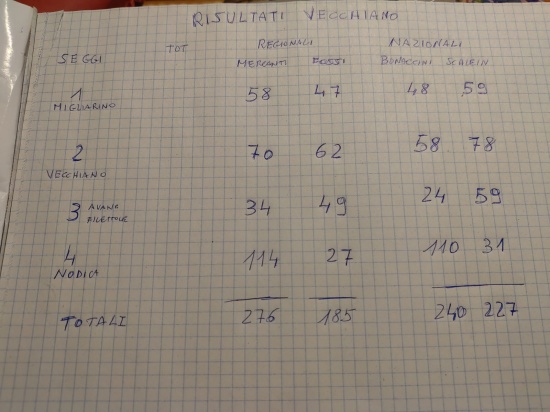 RISULTATI VECCHIANO
REGIONALI NAZIONALI
SEGGI TOT MERCANTI FOSSI BONACCINI SCHLEIN
1 58 47 48 59
MIGLIARINO
2 70 62 58 78
VECCHIANO
3 AVANE 34 49 24 59
FILETTOLE
4 114 27 110 31
NODICA
TOTALI 276 185 240 227